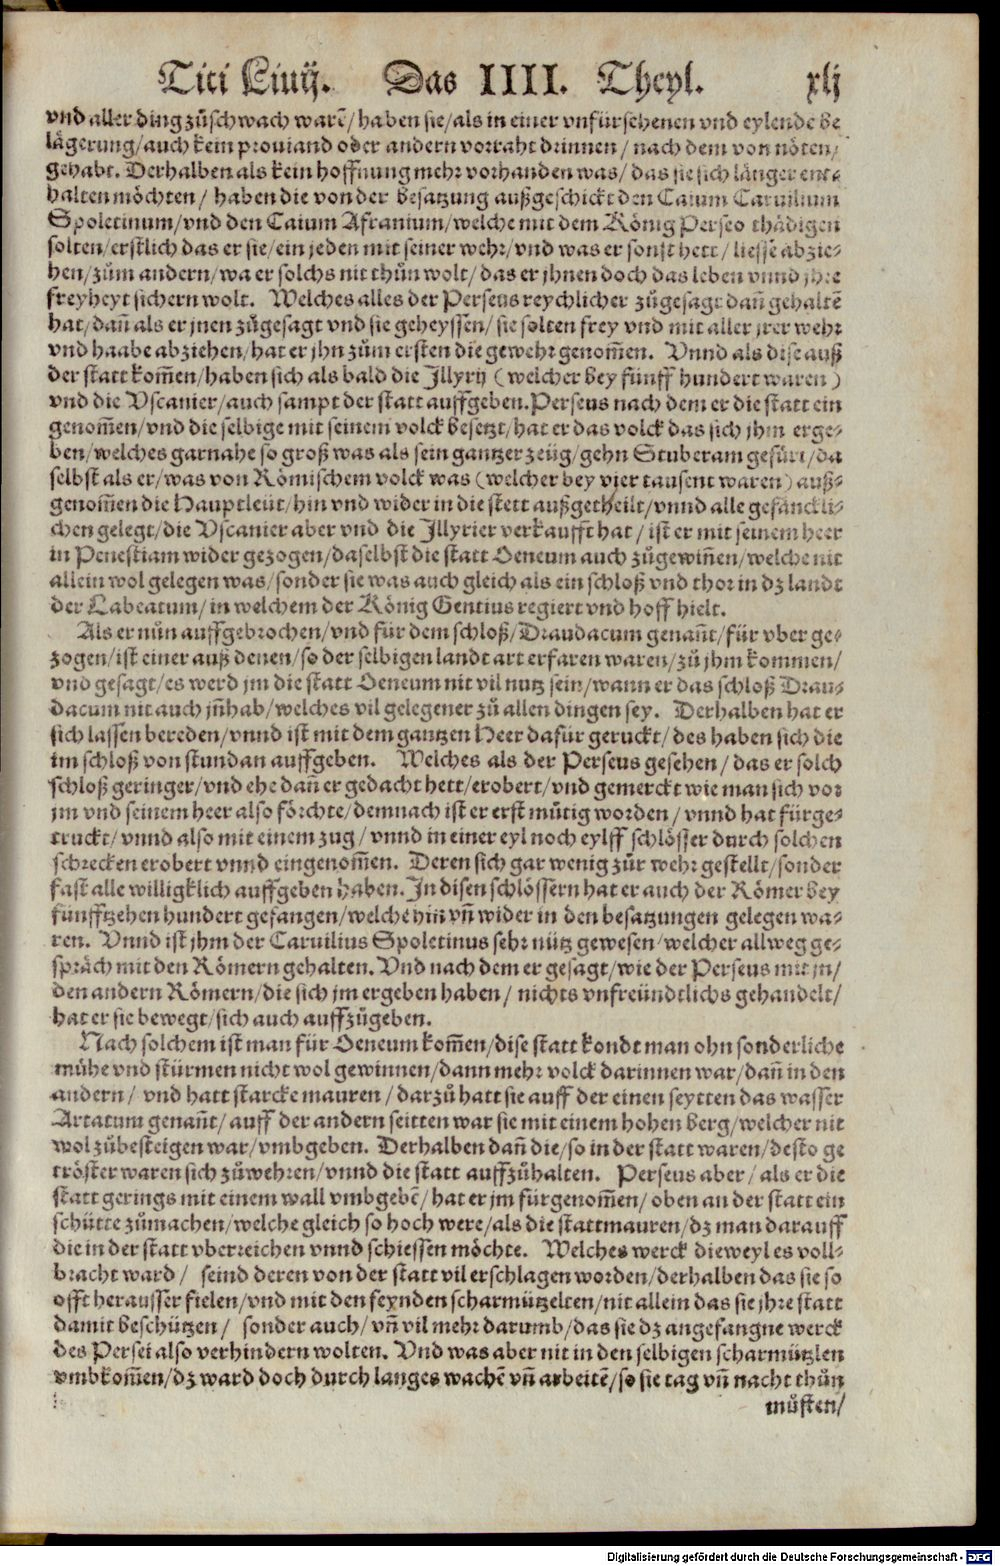 Titi Liuij. Das IIII. Theyl. xlj
vnd aller ding zůschwach warē/ haben sie/ als in einer vnfürsehenen vnd eylende be
lägerung/ auch kein prouiand oder andern vorraht drinnen/ nach dem von nöten/
gehabt. Derhalben als kein hoffnung mehr vorhanden was/ das sie sich länger ent-
halten möchten/ haben die von der besatzung außgeschickt den Caium Caruilium
Spoletinum/ vnd den Caium Afranium/ welche mit dem König Perseo thädigen
solten/ erstlich das er sie/ ein jeden mit seiner wehr/ vnd was er sonst hett/ liesse abzie-
hen/ zům andern/ wa er solchs nit thůn wolt/ das er jhnen doch das leben vnnd jhre
freyheyt sichern wolt. Welches alles der Perseus reychlicher zůgesagt dañ gehaltē
hat/ dañ als er jnen zůgesagt vnd sie geheyssen/ sie solten frey vnd mit aller jrer wehr
vnd haabe abziehen/ hat er jhn zům ersten die gewehr genom̃en. Vnnd als dise auß
der statt kom̃en/ haben sich als bald die Jllyrij (welcher bey fünff hundert waren)
vnd die Vscanier/ auch sampt der statt auffgeben. Perseus nach dem er die statt ein
genom̃en/ vnd die selbige mit seinem volck besetzt/ hat er das volck das sich jhm erge-
ben/ welches garnahe so groß was als sein gantzer zeüg/ gehn Stuberam gefürt/ da
selbst als er/ was von Römischem volck was (welcher bey vier tausent waren) auß-
genom̃en die Hauptleüt/ hin vnd wider in die stett außgetheilt/ vnnd alle gefäncklich
chen gelegt/ die Vscanier aber vnd die Jllyrier verkaufft hat/ ist er mit seinem heer
in Penestiam wider gezogen/ daselbst die statt Oeneum auch zůgewiñen/ welche nit
allein wol gelegen was/ sonder sie was auch gleich als ein schloß vnd thor in dz landt
der Labeatum/ in welchem der König Gentius regiert vnd hoff hielt.
Als er nůn auffgebrochen/ vnd für dem schloß/ Draudacum genañt/ für vber ge-
zogen/ ist einer auß denen/ so der selbigen landt art erfaren waren/ zů jhm kommen/
vnd gesagt/ es werd jm die statt Oeneum nit vil nutz sein/ wann er das schloß Drau-
dacum nit auch jñhab/ welches vil gelegener zů allen dingen sey. Derhalben hat er
sich lassen bereden/ vnnd ist mit dem gantzen Heer dafür geruckt/ des haben sich die
im schloß von stundan auffgeben. Welches als der Perseus gesehen/ das er solch
schloß geringer/ vnd ehe dañ er gedacht hett/ erobert/ vnd gemerckt wie man sich vor
jm vnd seinem heer also förchte/ demnach ist er erst mütig worden/ vnnd hat fürge-
truckt/ vnnd also mit einem zug/ vnnd in einer eyl noch eylff schlösser durch solchen
schrecken erobert vnnd eingenom̃en. Deren sich gar wenig zůr wehr gestellt/ sonder
fast alle willigklich auffgeben haben. Jn disen schlössern hat er auch der Römer bey
fünfftzehen hundert gefangen/ welche hin vñ wider in den besatzungen gelegen wa-
ren. Vnnd ist jhm der Caruilius Spoletinus sehr nütz gewesen/ welcher allweg ge-
spräch mit den Römern gehalten. Vnd nach dem er gesagt/ wie der Perseus mit jn/
den andern Römern/ die sich jm ergeben haben/ nichts vnfreündtlichs gehandelt/
hat er sie bewegt/ sich auch auffzůgeben.
Nach solchem ist man für Oeneum kom̃en/ dise statt kondt man ohn sonderliche
mühe vnd stürmen nicht wol gewinnen/ dann mehr volck darinnen war/ dañ in den
andern/ vnd hatt starcke mauren/ darzů hatt sie auff der einen seytten das wasser
Artatum genañt/ auff der andern seitten war sie mit einem hohen berg/ welcher nit
wol zůbesteigen war/ vmbgeben. Derhalben dañ die/ so in der statt waren/ desto ge
tröster waren sich zůwehren/ vnnd die statt auffzůhalten. Perseus aber/ als er die
statt gerings mit einem wall vmbgebē/ hat er jm fürgenom̃en/ oben an der statt ein
schütte zůmachen/ welche gleich so hoch were/ als die stattmauren/ dz man darauff
die in der statt vberreichen vnnd schiessen möchte. Welches werck dieweyl es voll-
bracht ward/ seind deren von der statt vil erschlagen worden/ derhalben das sie so
offt herausser fielen/ vnd mit den feynden scharmützelten/ nit allein das sie jhre statt
damit beschützen/ sonder auch/ vñ vil mehr darumb/ das sie dz angefangne werck
des Persei also verhindern wolten. Vnd was aber nit in den selbigen scharmützlen
vmbkom̃en/ dz ward doch durch langes wachē vñ arbeitē/ so sie tag vñ nacht thůn
můsten/
Digitalisierung gefördert durch die Deutsche Forschungsgemeinschaft - DFG